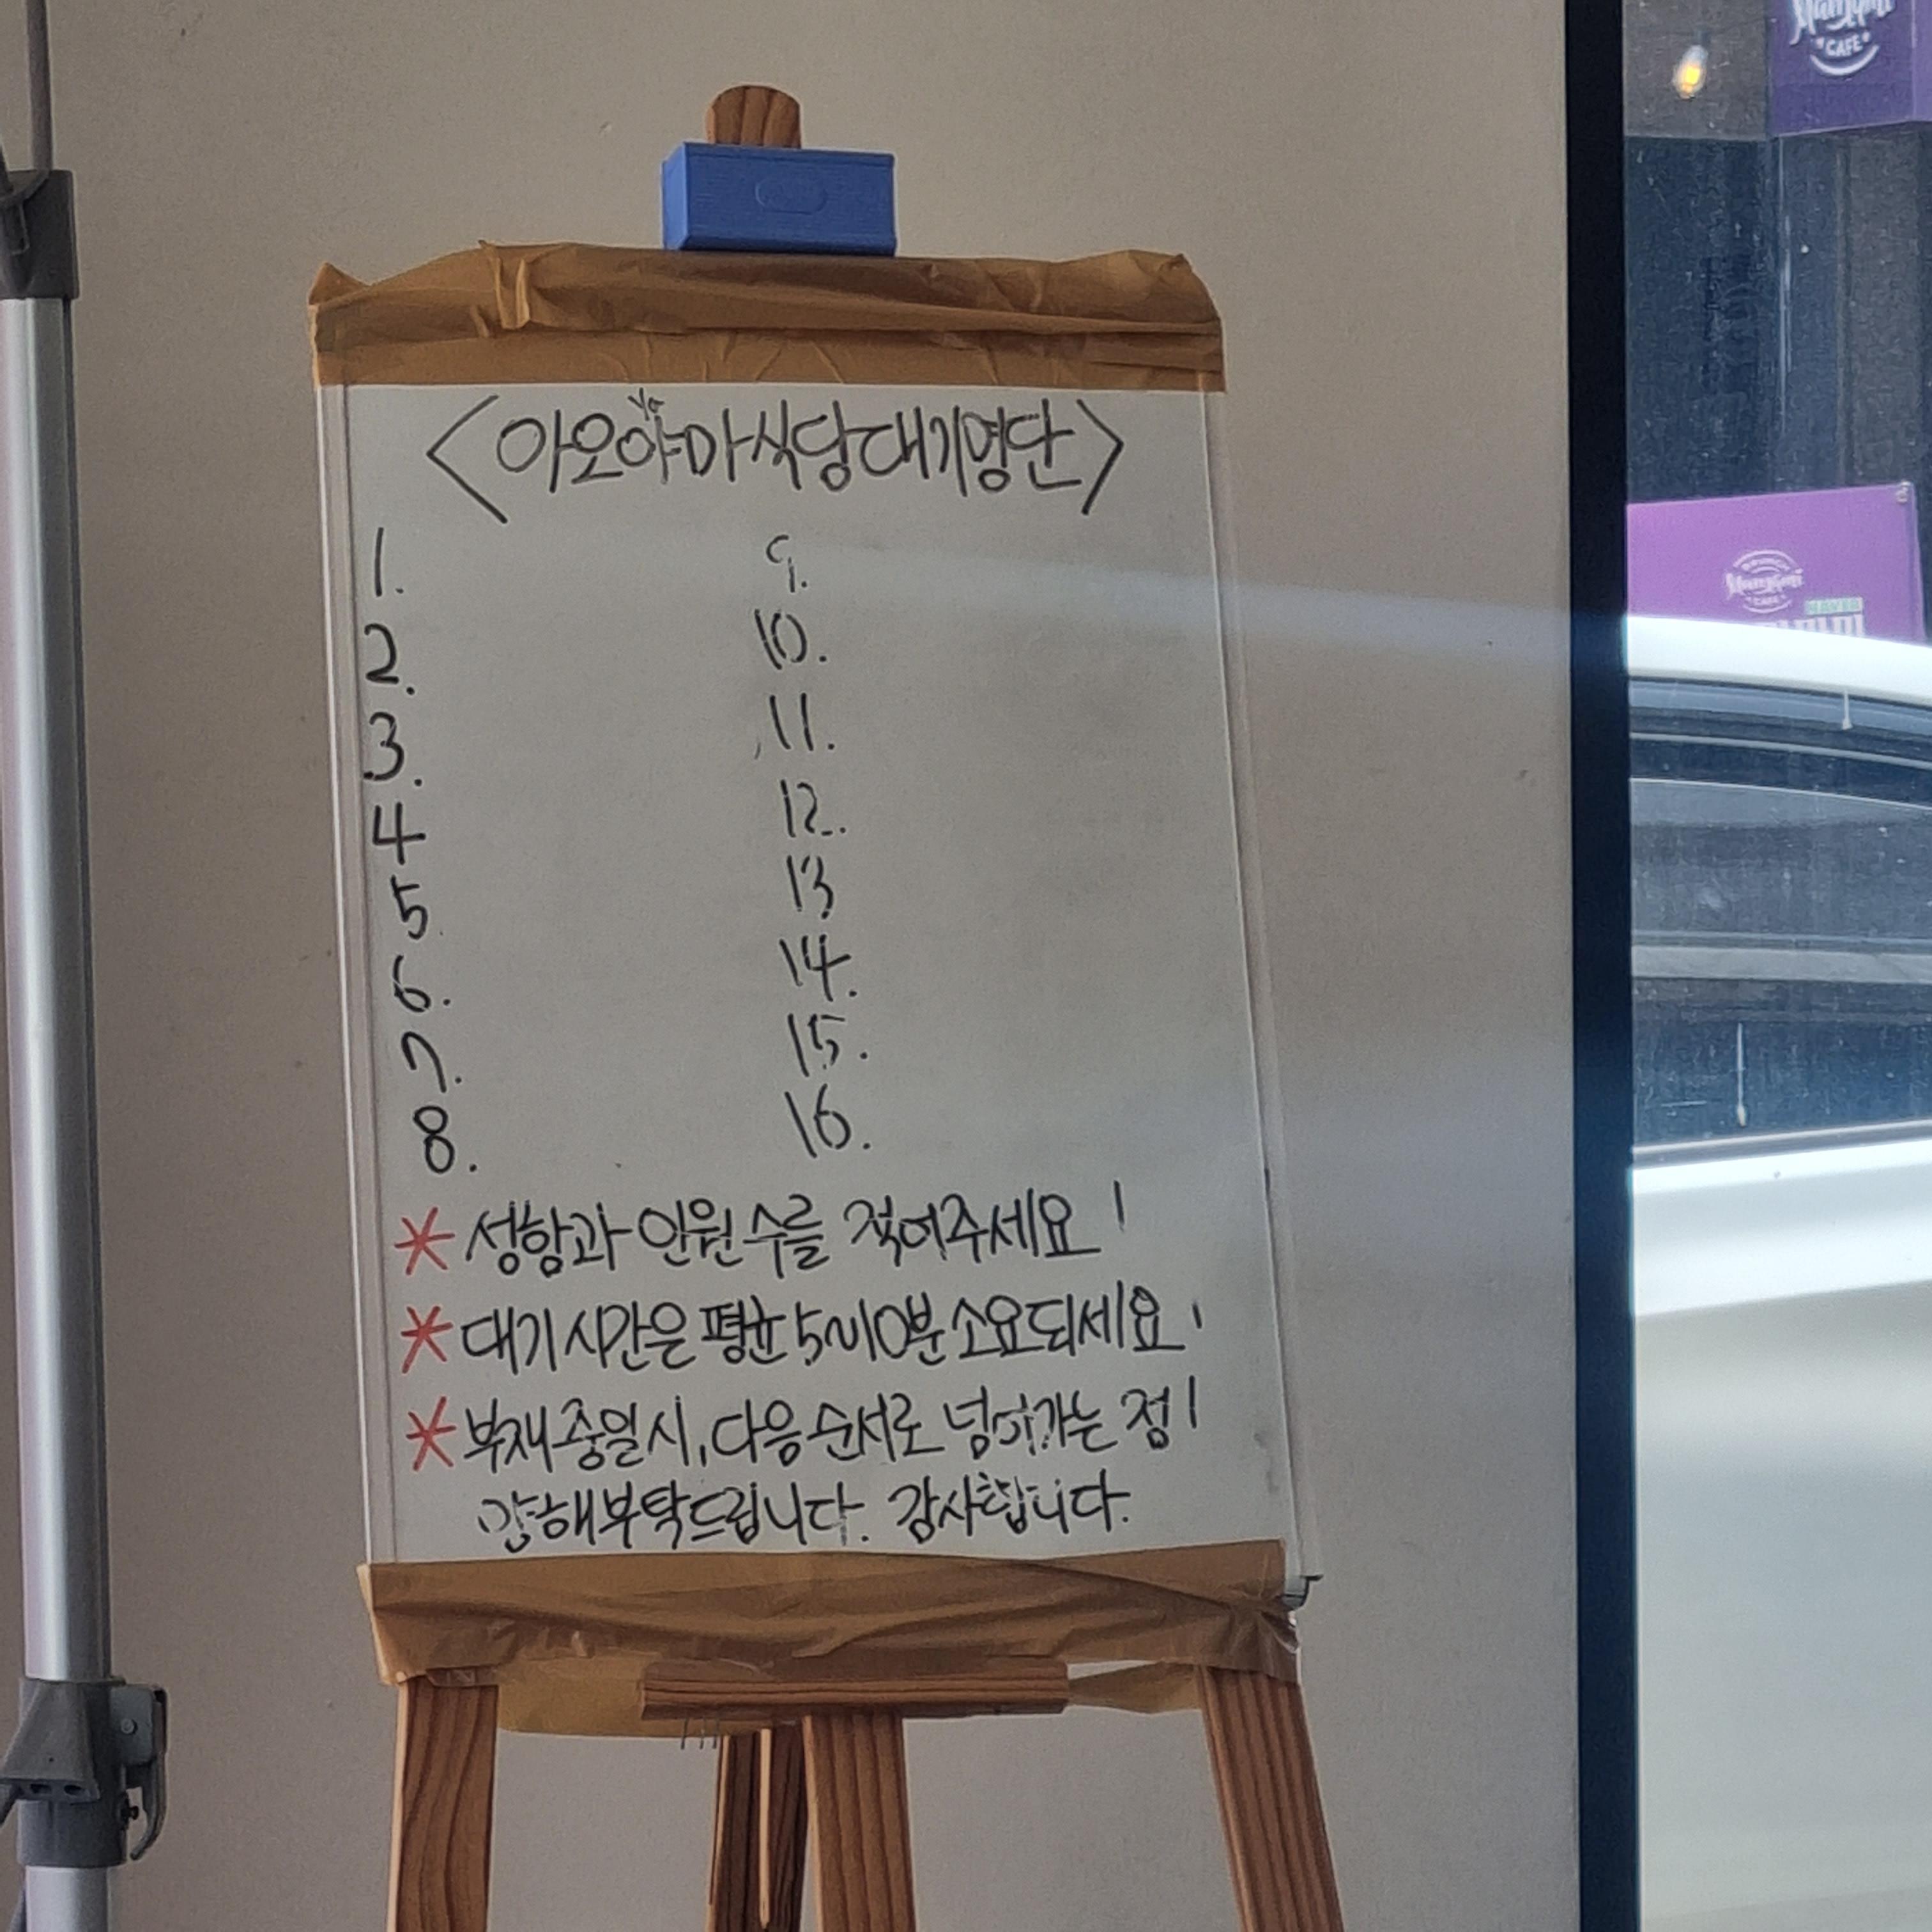 <아오야마식당대기명단>
Ya
1.
2.
3.
4
5
6.
7.
8.
9.
10.
11.
12.
13
14.
15.
16.
* 성함과 인원수를 적어주세요!
* 대기시간은 평균5~10분소요되세요!
* 부재중일시, 다음순서로 넘어가는 점!
양해부탁드립니다. 감사합니다.
CAFE
CAFE
NAVER